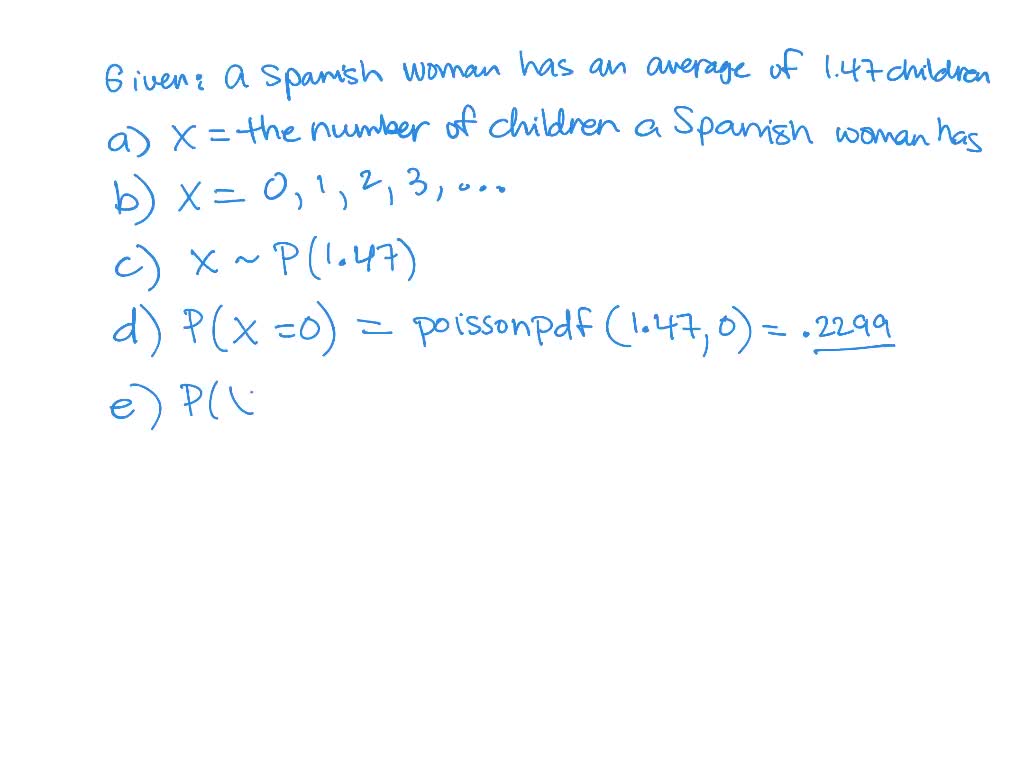 Given: a Spanish woman has an average of 1.47 children
a) X = the number of children a Spanish woman has
b) X = 0, 1, 2, 3, ...
c) X ~ P(1.47)
d) P(X = 0) = poissonpdf(1.47, 0) = .2299
e) P(